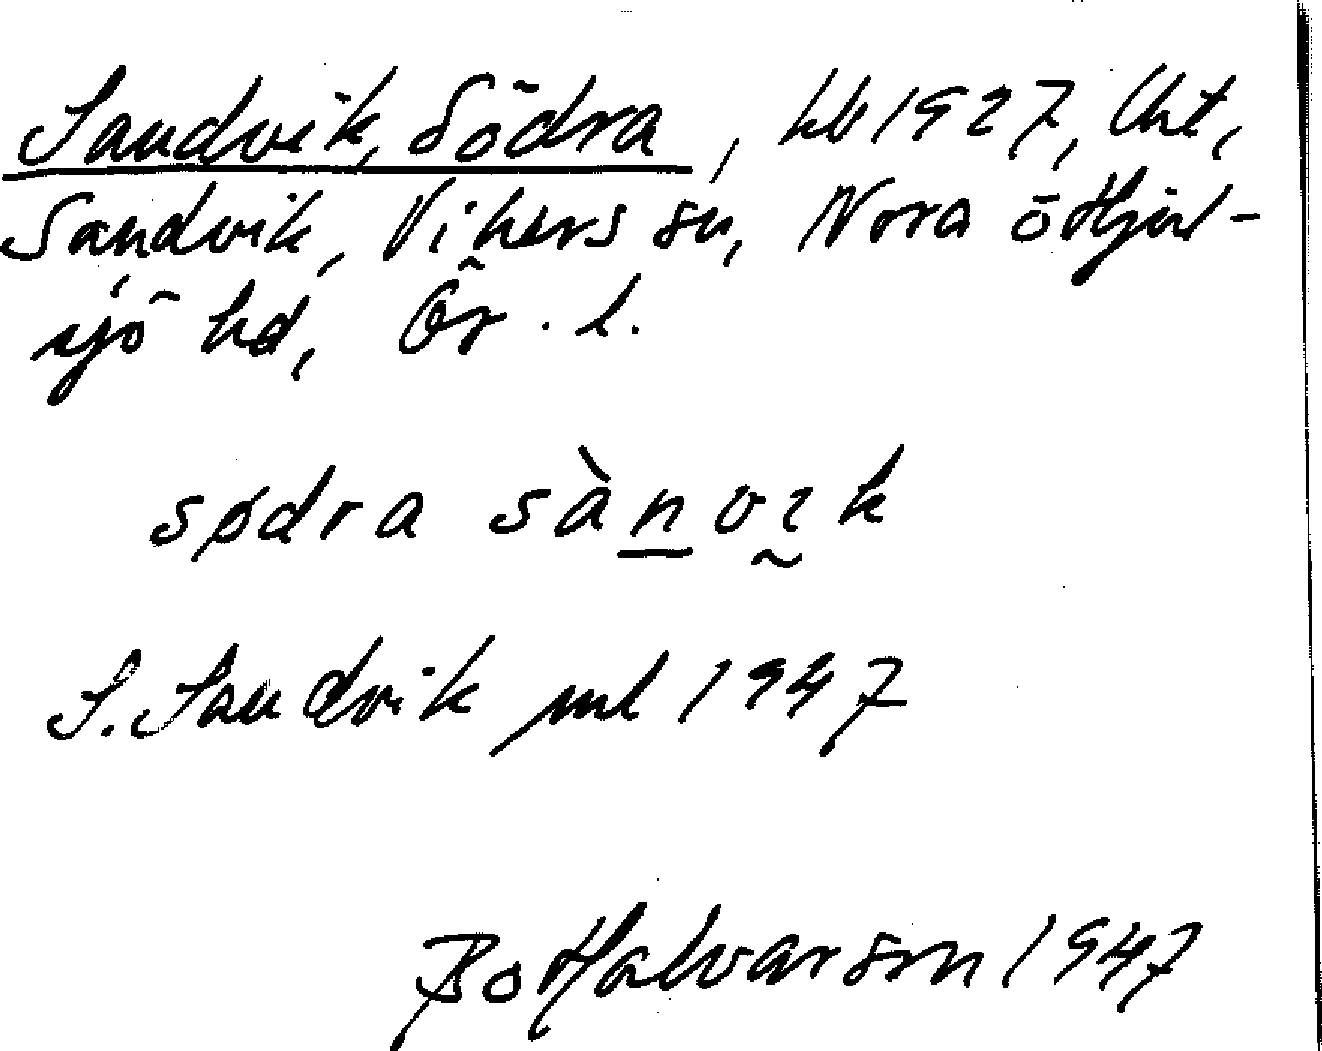 Sandvik, Södra, hb 1927, Cht,
Sandvik, Vikers sn, Nora ö Hjul-
sjö hd, Ör. l.
sødra sànvɩk
S. Sandvik ml 1947
Bo Halvarson 1947